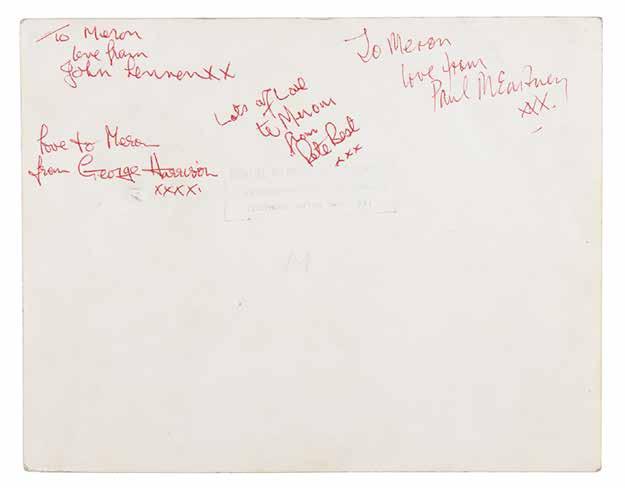 To Meron
love from
John Lennon xx
To Meron
love from
Paul McCartney
xxx.
Lots of Love
to Merom
from
Pete Best
xxx
love to Meron
from George Harrison
xxxx.